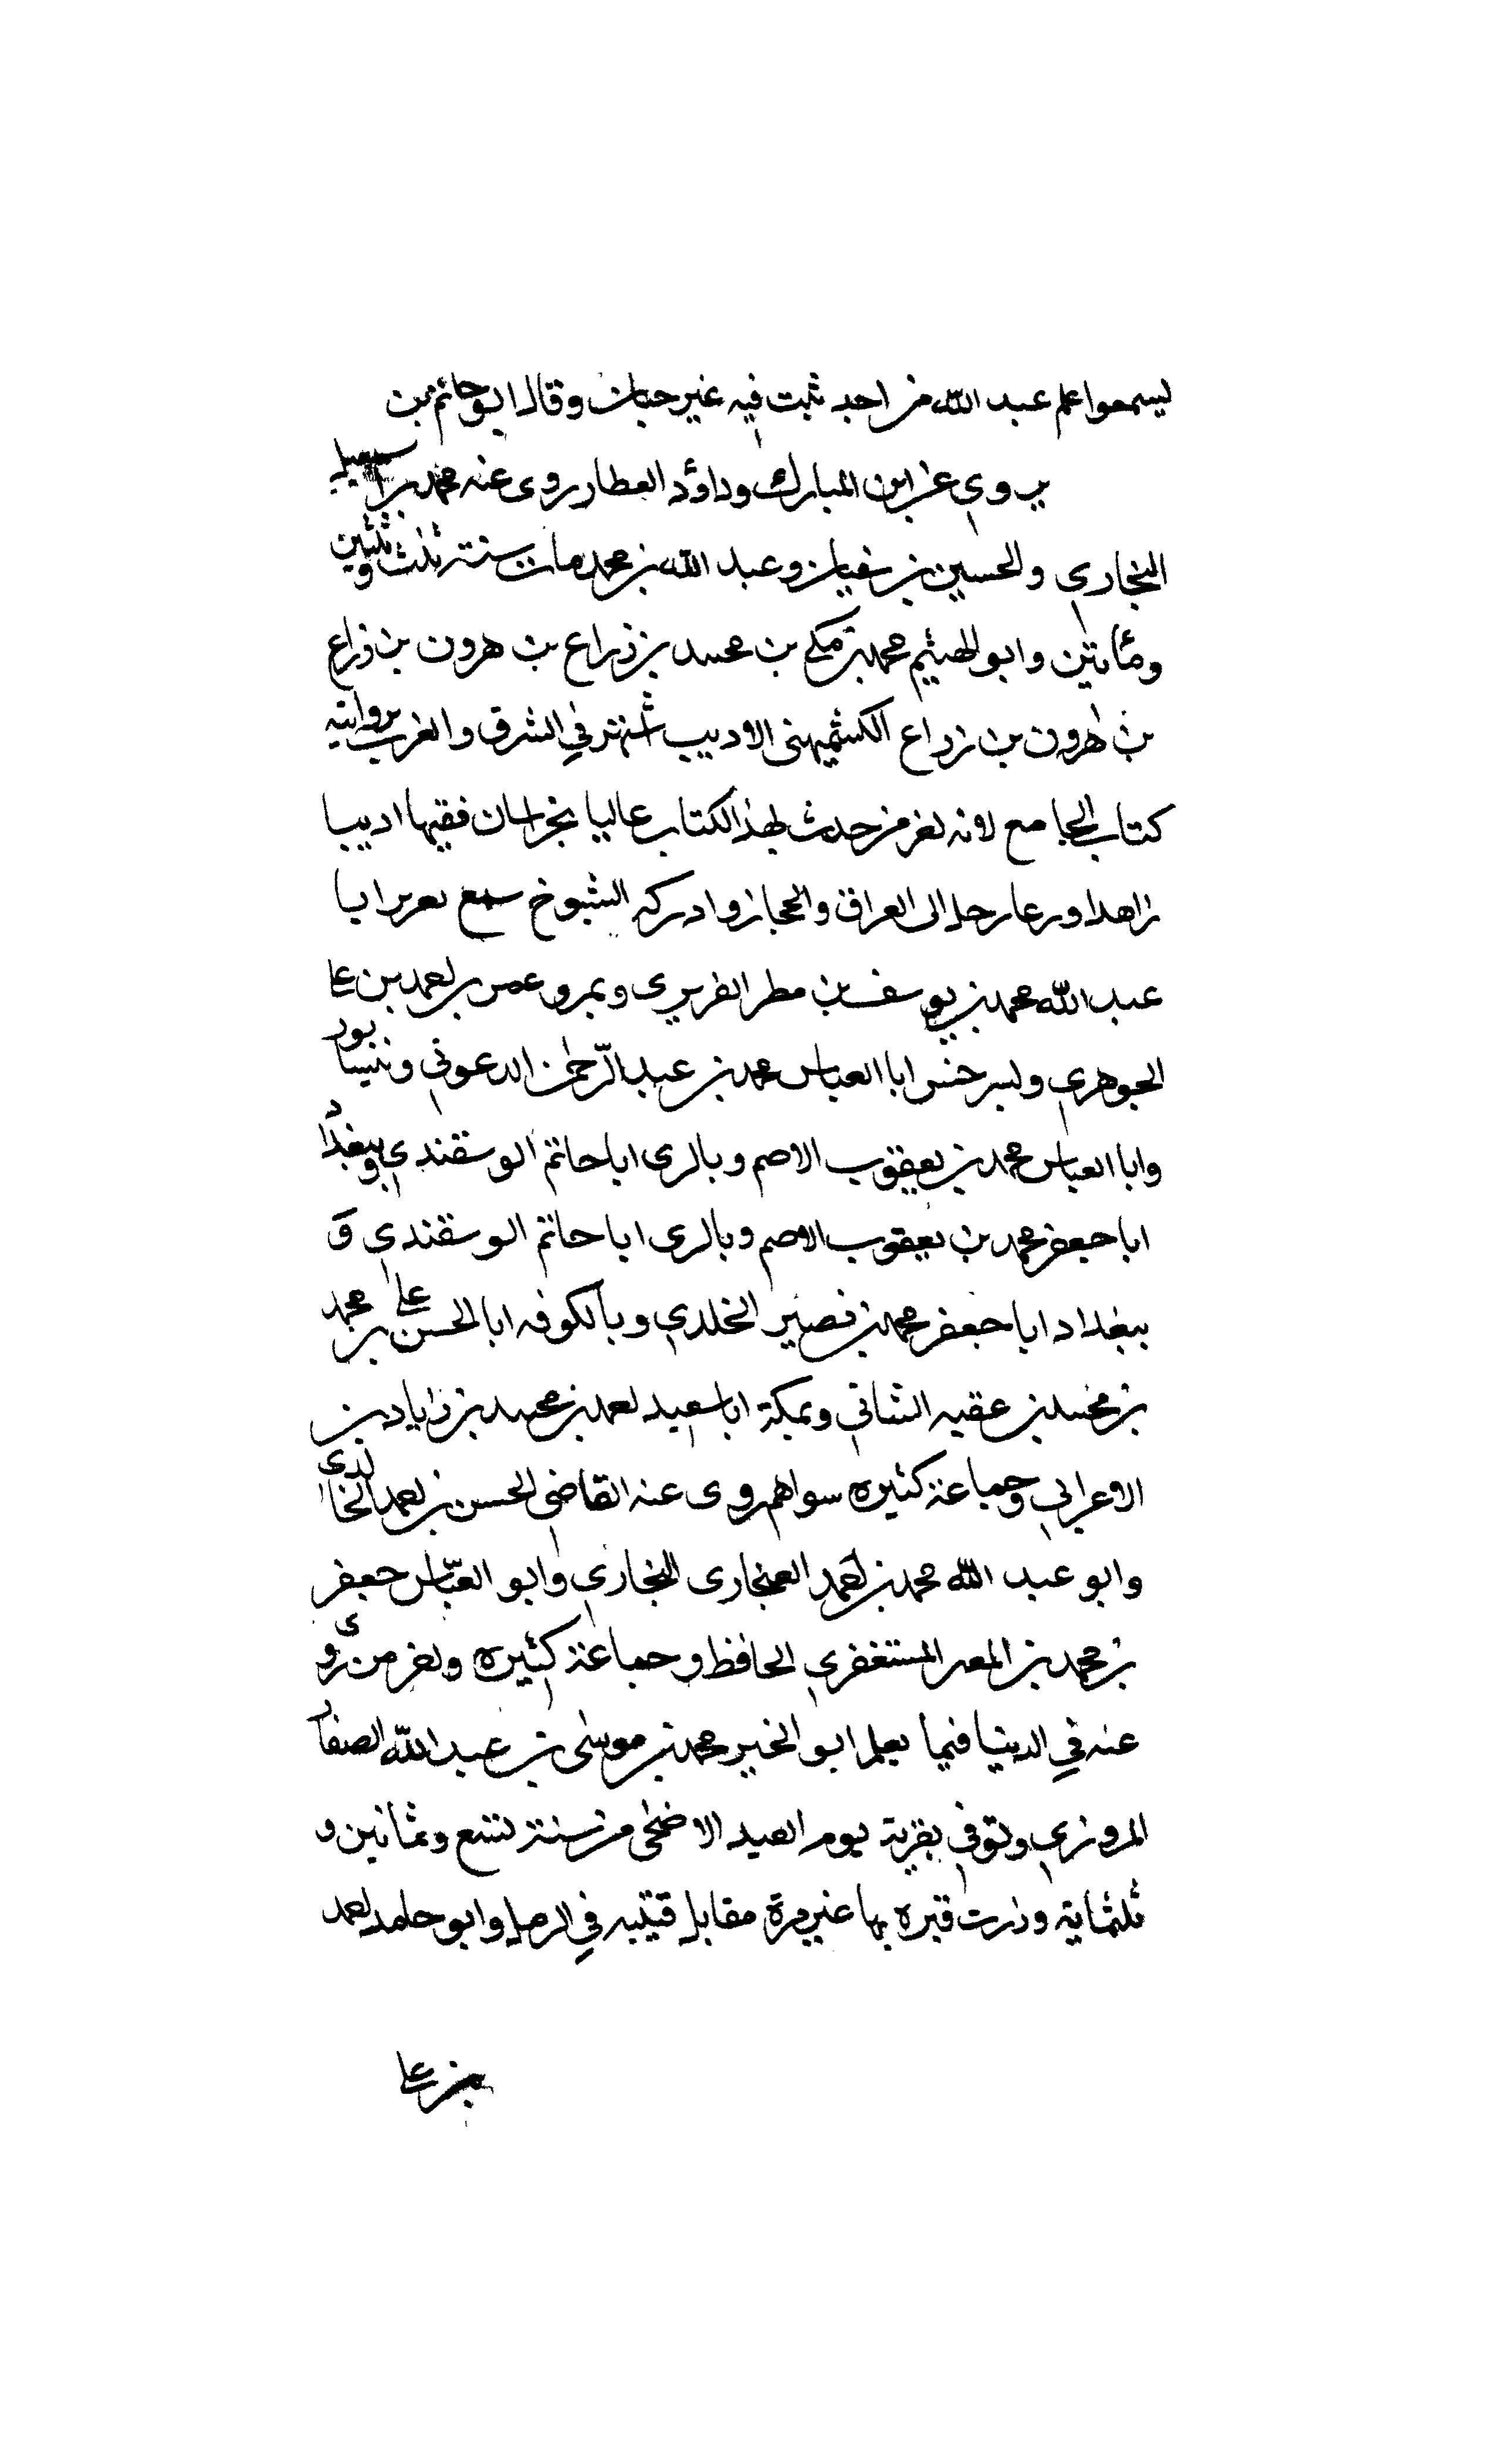 ليسمعوا علم عبد الله من احد ثبت فيه غير حبان وقال ابو حاتم ممن
يروي عن ابن المبارك وداؤد العطار روى عنه محمد بن اسمعيل
البخاري والحسين بن سفيان وعبد الله بن محمد مات سنة ثلث وثلثين
ومأتين وابو الهيثم محمد بن مكي بن محمد بن زراع بن هرون بن زراع
بن هرون بن زراع الكشميهني الاديب اشتهر في الشرق والغرب بروايته
كتاب الجامع لانه اخر من حدث بهذا الكتاب عاليا بخراسان فقيها اديبا
زاهدا ورعا رحل الى العراق والحجاز وادرك الشيوخ سمع بفربر ابا
عبد الله محمد بن يوسف بن مطر الفربري وبمرو عمر بن احمد بن علي
الجوهري وبسرخس ابا العباس محمد بن عبد الرحمن الدعوني ونيسابور
وابا العباس محمد بن يعقوب الاصم وبالري ابا حاتم الوسقندي وببغداد
ابا جعفر محمد بن يعقوب الاصم وبالري ابا حاتم الوسقندي و
ببغداد ابا جعفر محمد بن نصير الخلدي وبالكوفه ابا الحسن علي بن محمد
بن محمد بن عقبه الشناني وبمكة ابا سعيد احمد بن محمد بن زياد بن
الاعرابي وجماعة كثيره سواهم روى عنه القاضي الحسن بن احمد الخالدي
وابو عبد الله محمد بن احمد الغنجاري البخاري وابو العباس جعفر
بن محمد بن المعتز المستغفري الحافظ وجماعة كثيره واخر من روى
عنه في الدنيا فيما يعلم ابو الخير محمد بن موسى بن عبد الله الصفار
المروزي وتوفي بقرية يوم العيد الاضحى من سنة تسع وثمانين و
ثلثماية وزرت قبره بها غير مرة مقابل قتيبه في الرمل وابو حامد احمد
بن علي